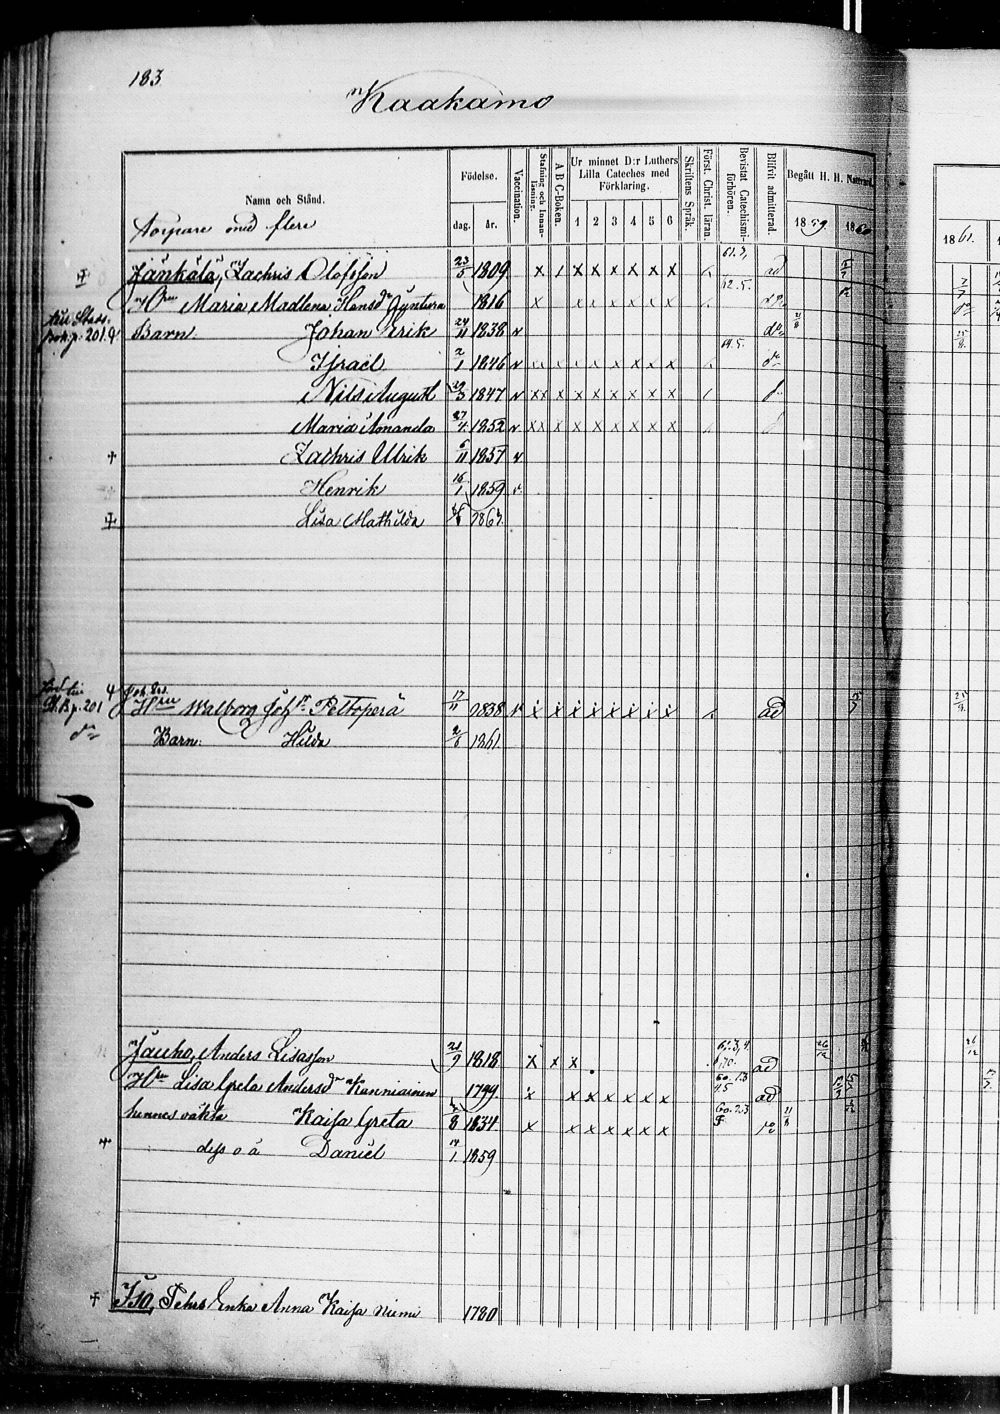 183
Kaakamo
Namn och Stånd.
Födelse.
dag.
år.
Vaccination.
Stafning och Innanläsning.
A B C-Boken.
Ur minnet D:r Luthers Lilla Cateches med Förklaring.
1 2 3 4 5 6
Skriftens Språk.
Först. Christ. läran.
Bevistat Catechismiförhören.
Blifvit admitterad
Begått H. H. Nattvard.
1859
1860
1861
Torpare med flere
Jänkälä, Zachris Olofsson 23/5 1809 x / x x x x x x 61.3, ad
Hru Maria Madlena Hansdr Juntura 1816 x x x x x x x 62.5.
Barn Johan Erik 24/11 1838 v do 21/8
till Stads. bok p. 201.
Israel 2/1 1846 v 60.5.
Nils August 29/3 1847 v xx x x x x x x x
Maria Amanda 27/4 1852 v xx x x x x x x x
† Zachris Ulrik 6/11 1857 v
Henrik 16/1 1859 v
Lisa Mathilda 1863
Hru Walborg Joh. Pettoperä 17/11 1838 v x x x x x x x x ad
p. 201
Barn: Hilda 2/6 1861
Jauho, Anders Lisasson 21/9 1818 x x x 61.3,4. ad 26/12
Hru Lisa Greta Andersdr Kanniainen 1799 x x x x x x x 60. ad
hennes oäkta Kaisa Greta 8 1834 x x x x x x x 60.2.3 do 11/8
dess o ä Daniel 14/1 1859
Iso, Pehrs Enka Anna Kaisa Niemi 1780